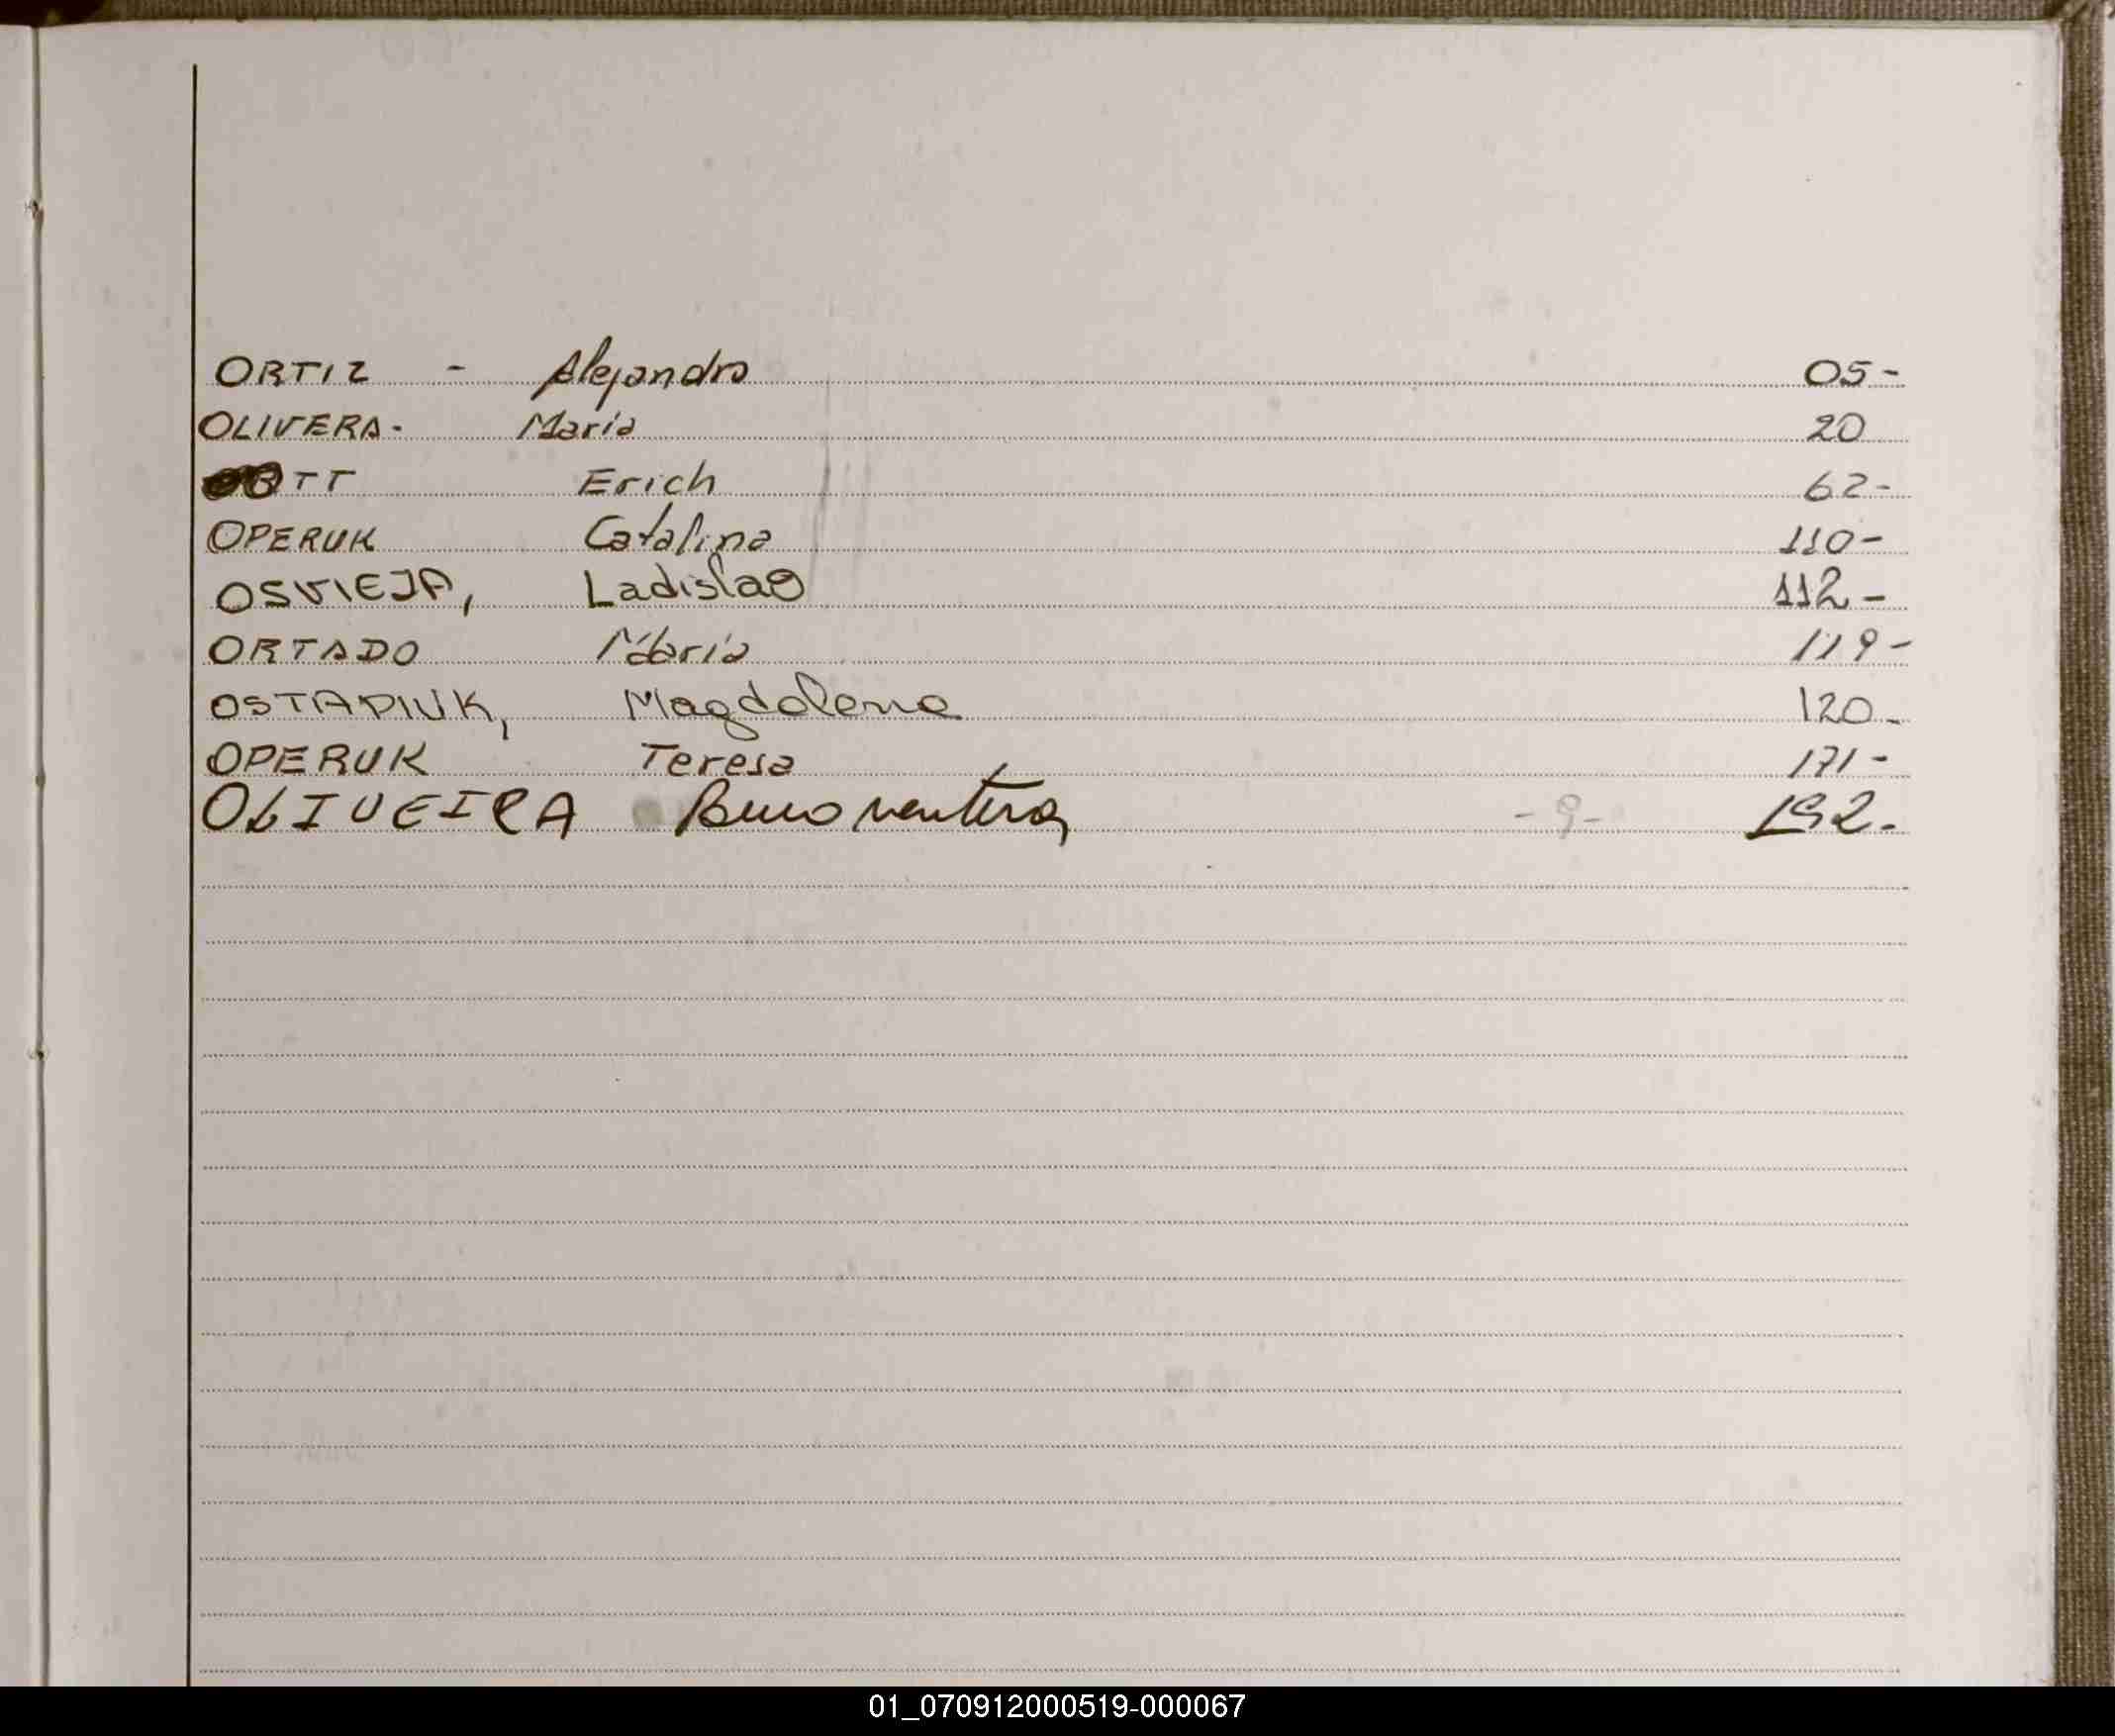 ORTIZ - Alejandro 05-
OLIVERA- María 20
OTT Erich 62-
OPERUK Catalina 110-
OSVIEJA, Ladislao 112-
ORTADO María 119-
OSTAPIUK, Magdalena 120-
OPERUK Teresa 171-
OLIVEIRA -9- 192-
01_070912000519-000067